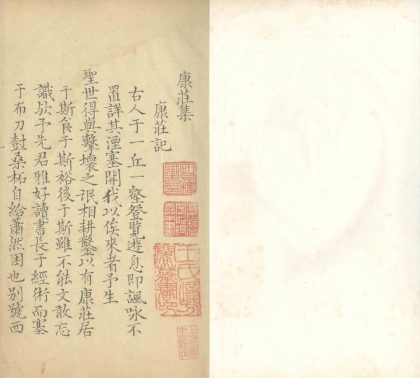 康莊集
康莊記
古人于一丘一壑登覽遊息即諷咏不
置詳其湮塞開我以俟來者予生
聖世得與擊壤之氓相耕鑿以有康莊居
于斯食于斯裕後于斯雖不能文敢忘
識欤予先君雅好讀書長于經術而塞
于布刀對桑柘自給蕭然困也別號西